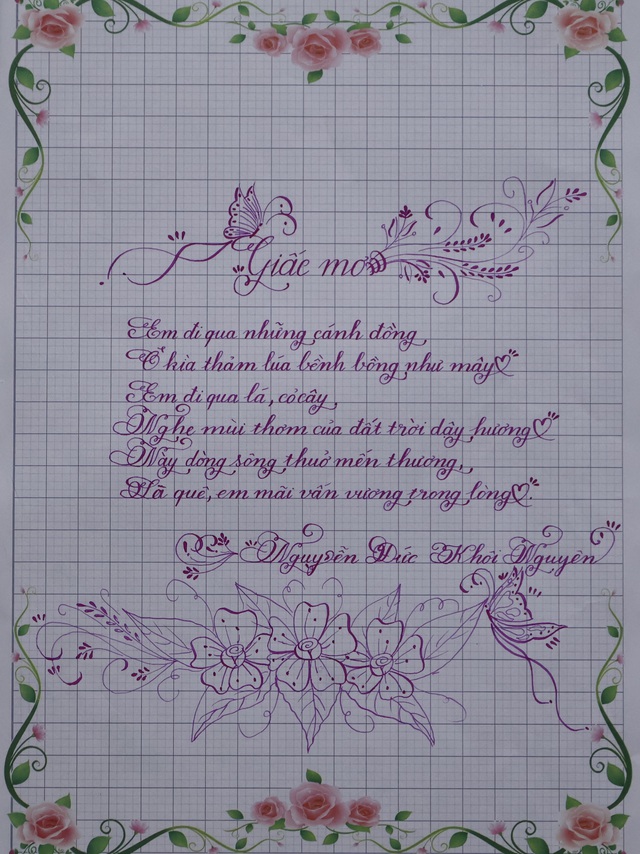 Giấc mơ
Em đi qua những cánh đồng
Ồ kìa thảm lúa bềnh bồng như mây
Em đi qua lá, cỏ cây
Nghe mùi thơm của đất trời dậy hương
Này dòng sông thuở mến thương,
Là quê, em mãi vấn vương trong lòng.
Nguyễn Đức Khôi Nguyên